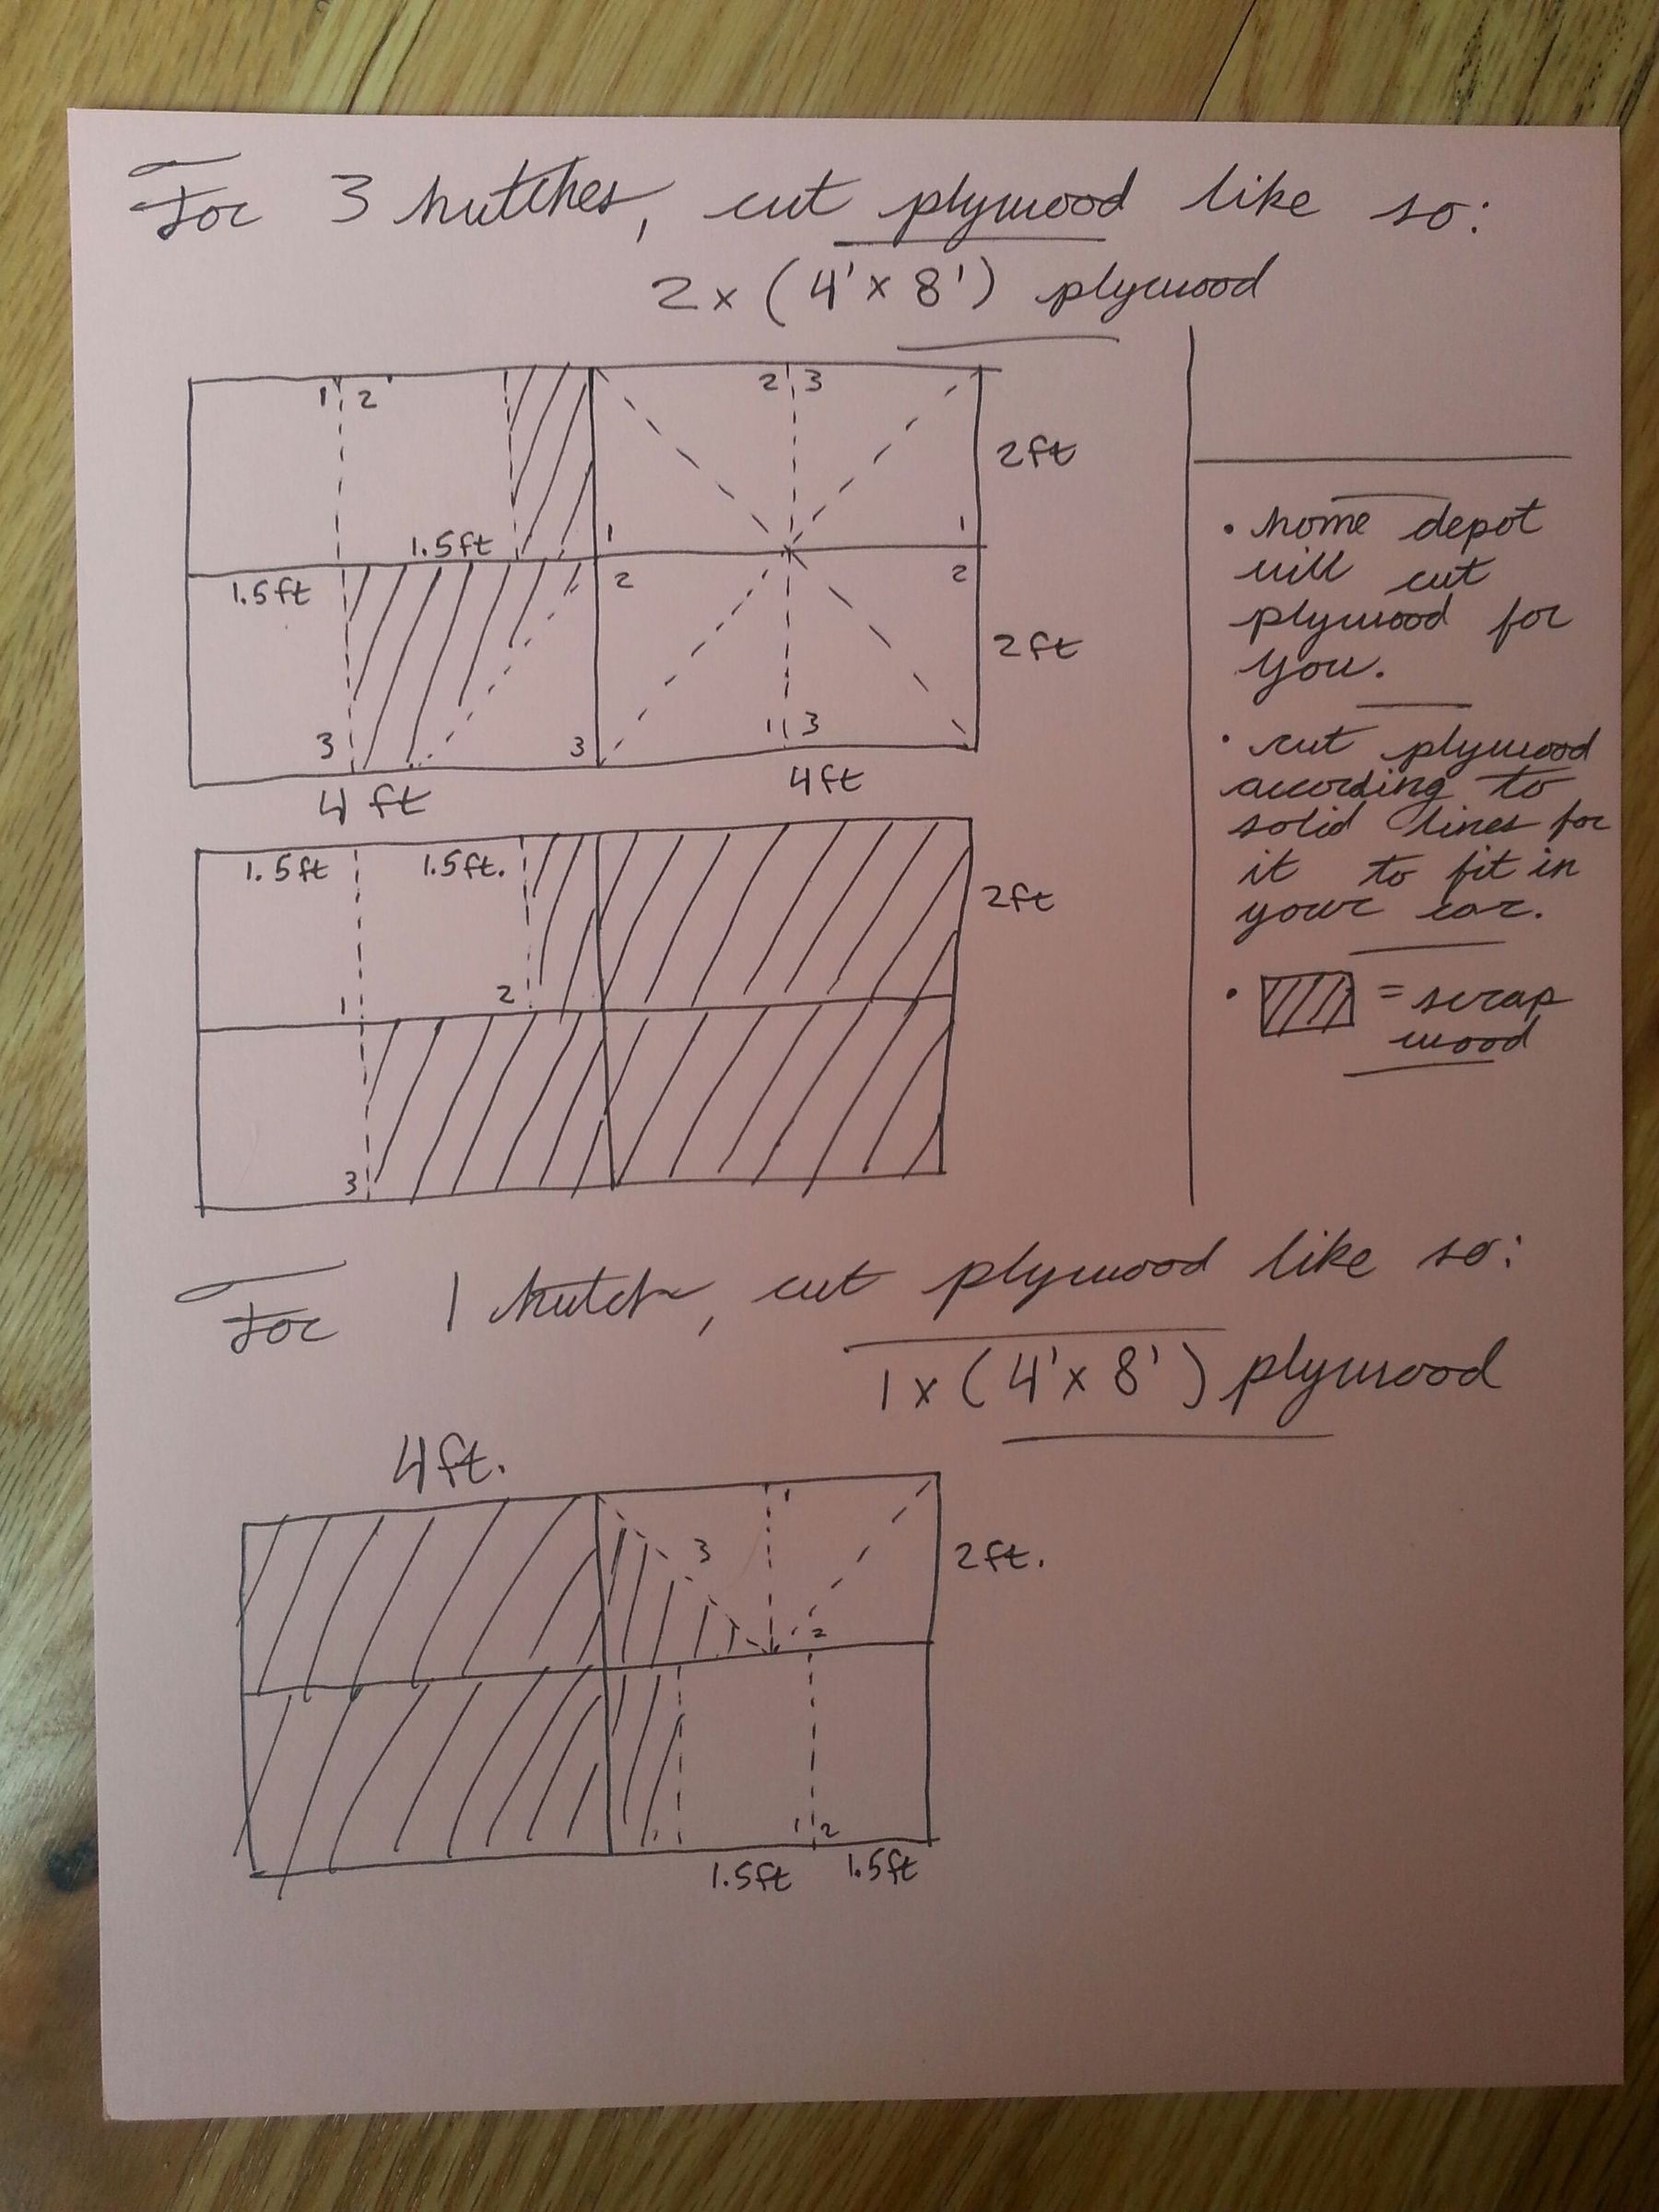 For 3 hutches, cut plywood like so:
2 x (4' x 8') plywood
1 2
2 3
2ft
1.5ft
1
1
1.5ft
2
2
2ft
3
3
1 3
4 ft
4ft
1.5ft
1.5ft.
2ft
1
2
3
• home depot
will cut
plywood for
you.
• cut plywood
according to
solid lines for
it to fit in
your car.
• = scrap
wood
For 1 hutch, cut plywood like so:
1 x (4' x 8') plywood
4ft.
1
3
2ft.
2
1 2
1.5ft 1.5ft